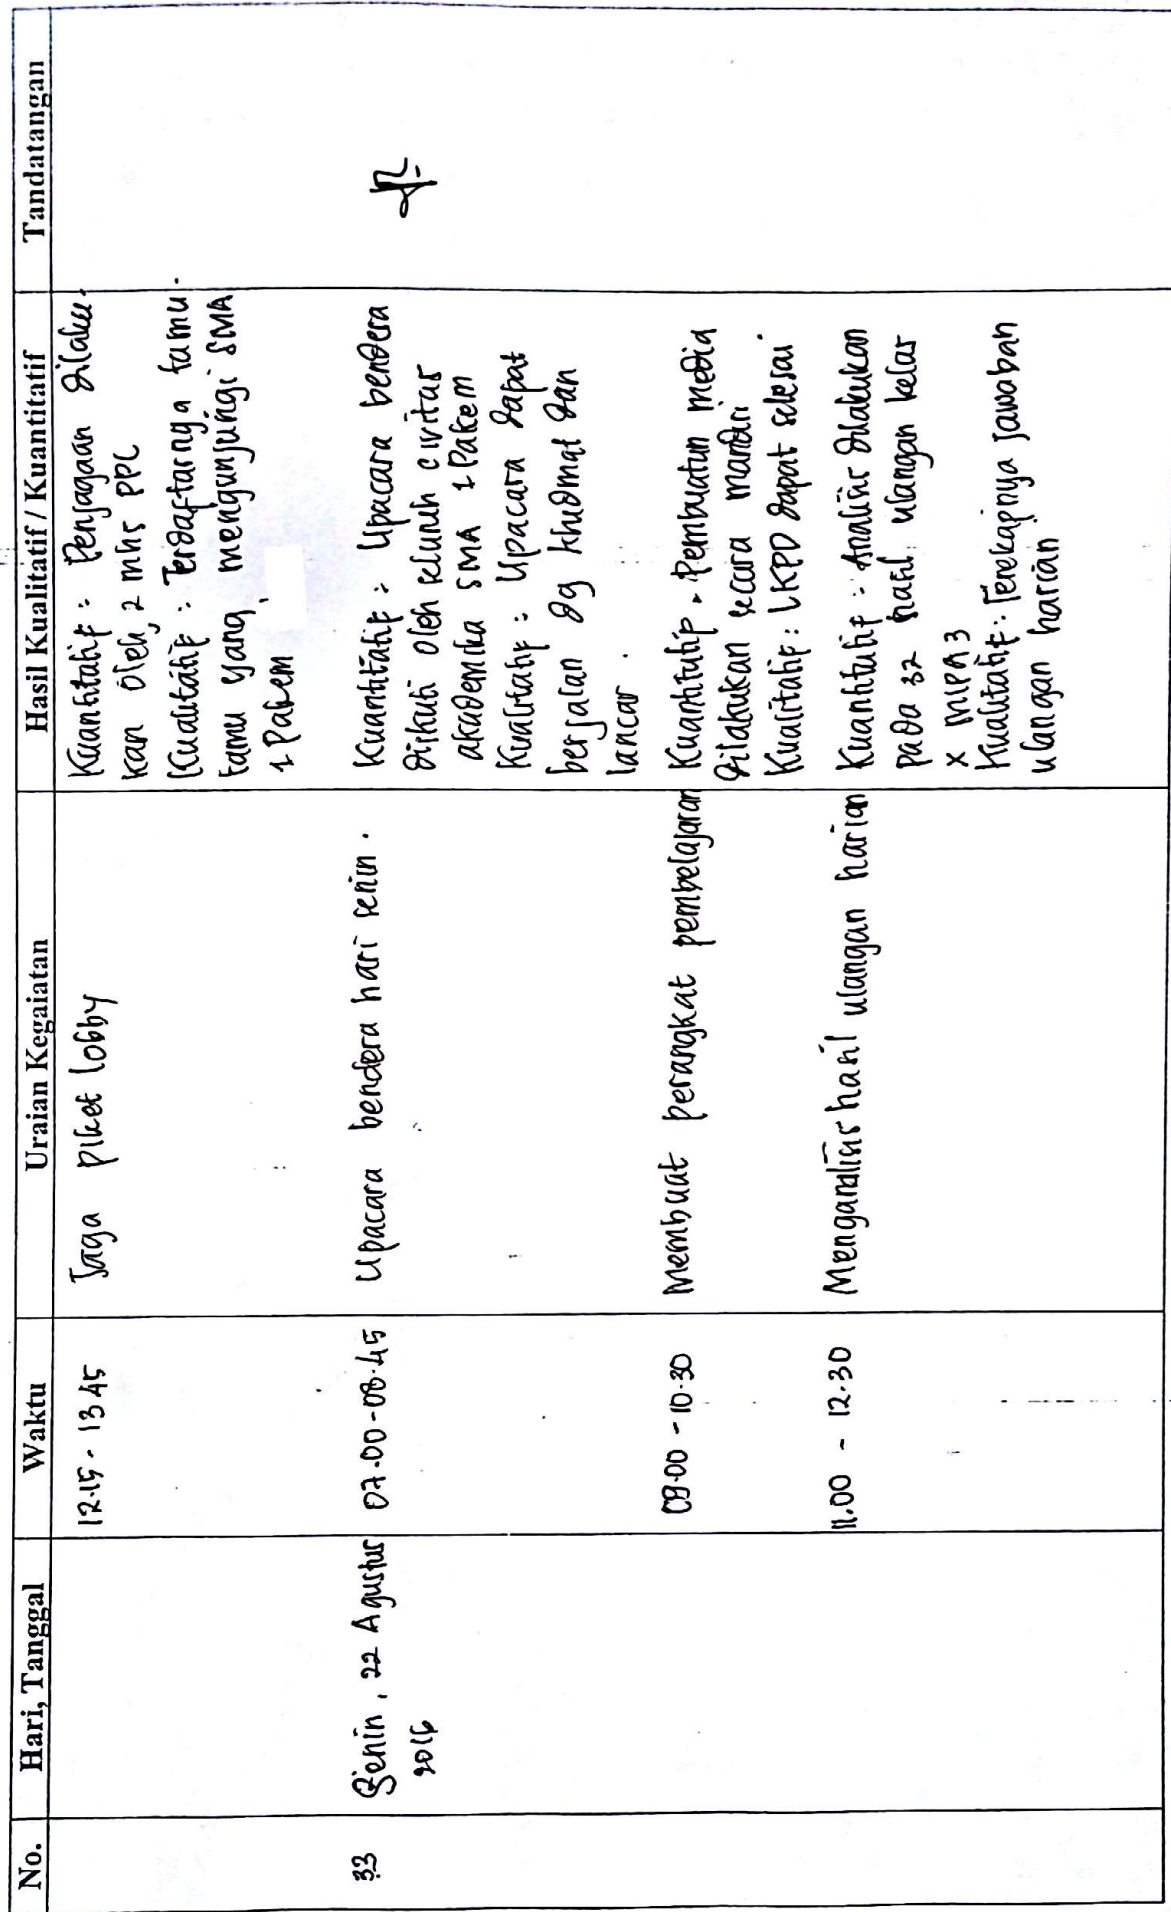 No. Hari, Tanggal Waktu Uraian Kegaiatan Hasil Kualitatif / Kuantitatif Tandatangan
12.15 - 13.45 Jaga piket lobby Kuantitatif : Penjagaan dilaku-
kan oleh 2 mhs PPL
Kualitatif : Terdaftarnya tamu-
tamu yang mengunjungi SMA
1 Pakem
33 Senin, 22 Agustus 07.00-08.45 Upacara bendera hari senin. Kuantitatif : Upacara bendera
2016 diikuti oleh seluruh civitas
akademika SMA 1 Pakem
Kualitatif : Upacara dapat
berjalan dg khidmat dan
lancar.
09.00 - 10.30 Membuat perangkat pembelajaran Kuantitatif : Pembuatan media
dilakukan secara mandiri
Kualitatif : LKPD dapat selesai
11.00 - 12.30 Menganalisis hasil ulangan harian Kuantitatif : Analisis dilakukan
pada 32 hasil ulangan kelas
X MIPA 3
Kualitatif : Terekapnya jawaban
ulangan harian